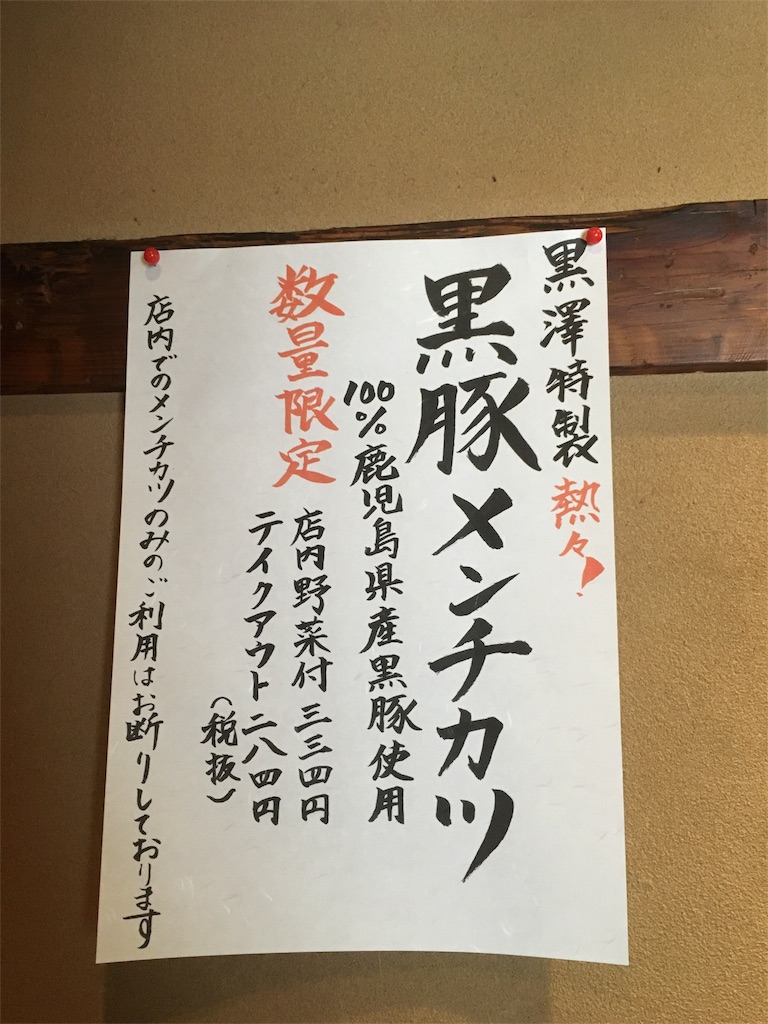 黒澤特製熱々!
黒豚メンチカツ
100%鹿児島県産黒豚使用
数量限定
店内野菜付三三四円
テイクアウト二八四円
(税抜)
店内でのメンチカツのみのご利用はお断りしております